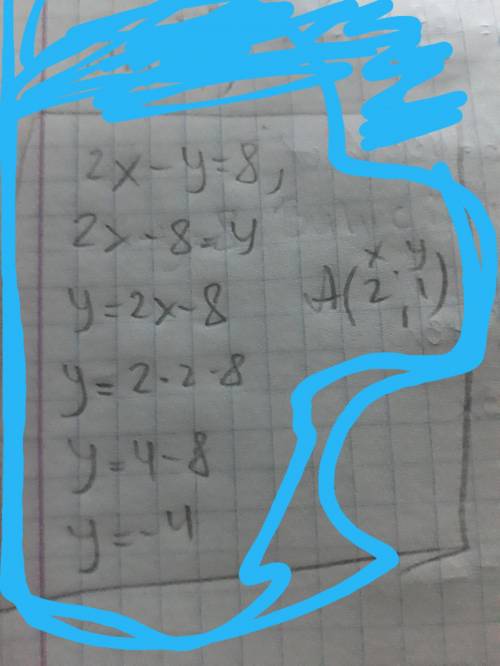 2x - y = 8,
2x - 8 = y
y = 2x - 8
x y
A(2, 1)
y = 2 · 2 - 8
y = 4 - 8
y = -4